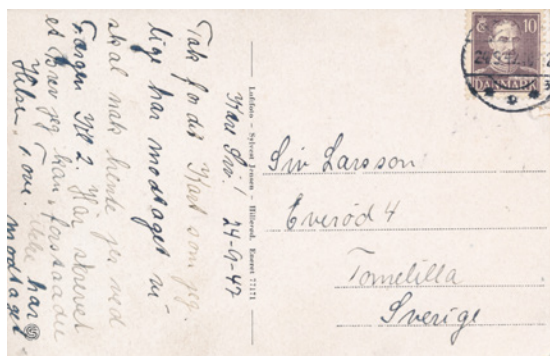 Kære Siv! 24-9-47
Tak for dit Kort som jeg
lige har modtaget vi
skal nok hente jer ved
Færgen Kl 2. Har skrevet
et Brev jeg kan forstaa du
ikke har modtaget
Hilsen, Tove.
Luftfoto – Sylvest Jensen – Hillerød. Eneret 77171
10
DANMARK
Siv Larsson
Everöd 4
Tomelilla
Sverige